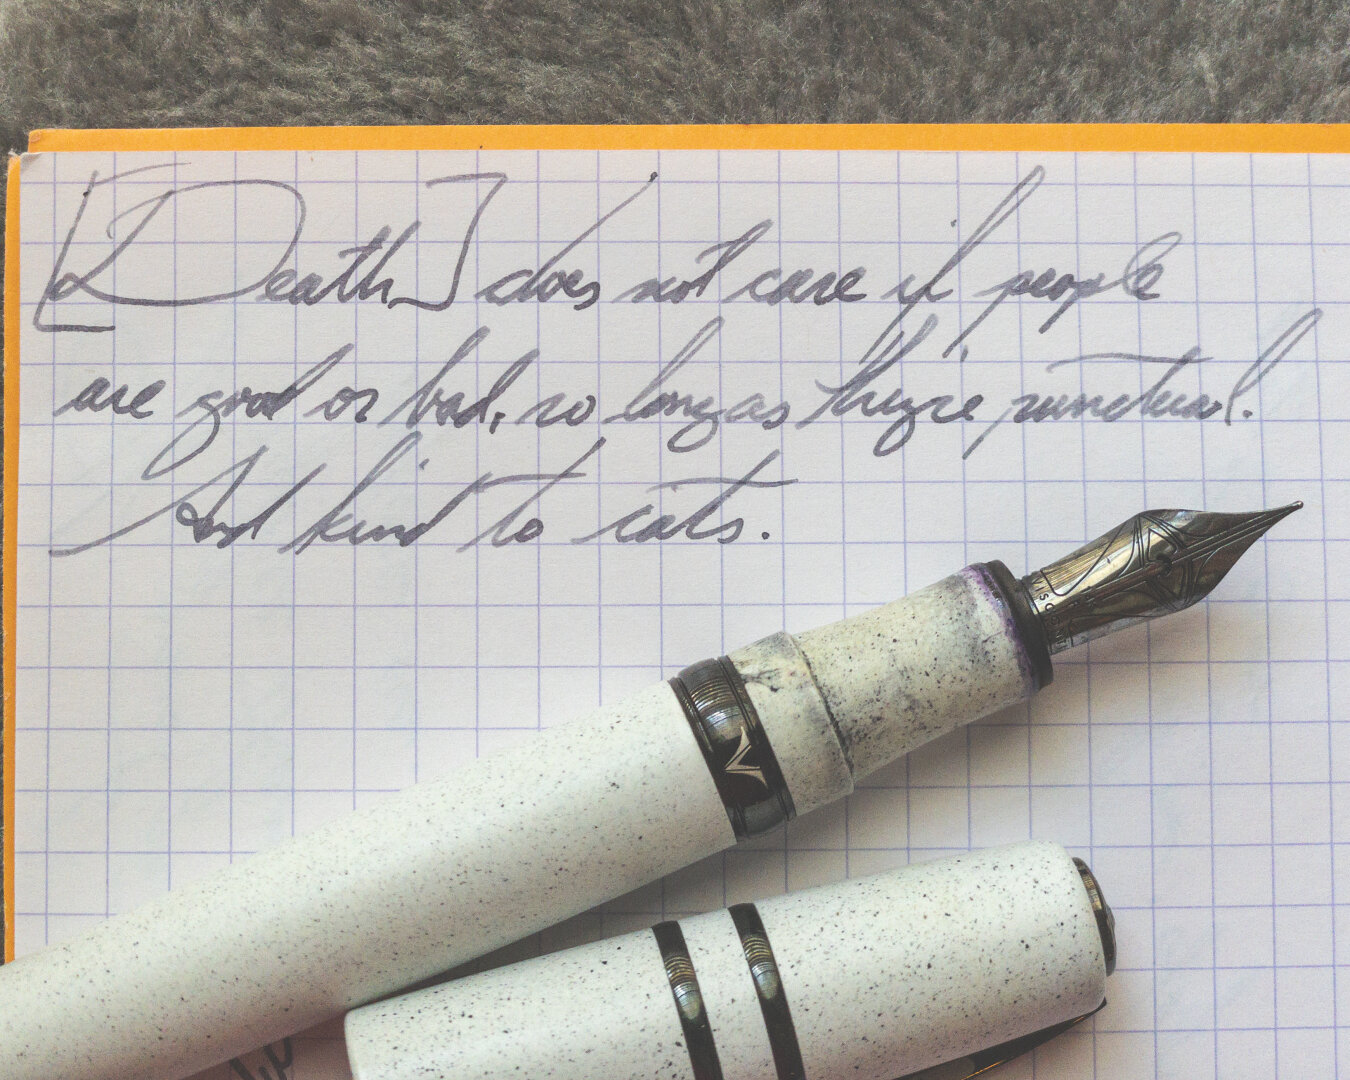 [Death] does not care if people
are good or bad, so long as they're punctual.
And kind to cats.
VISCONTI